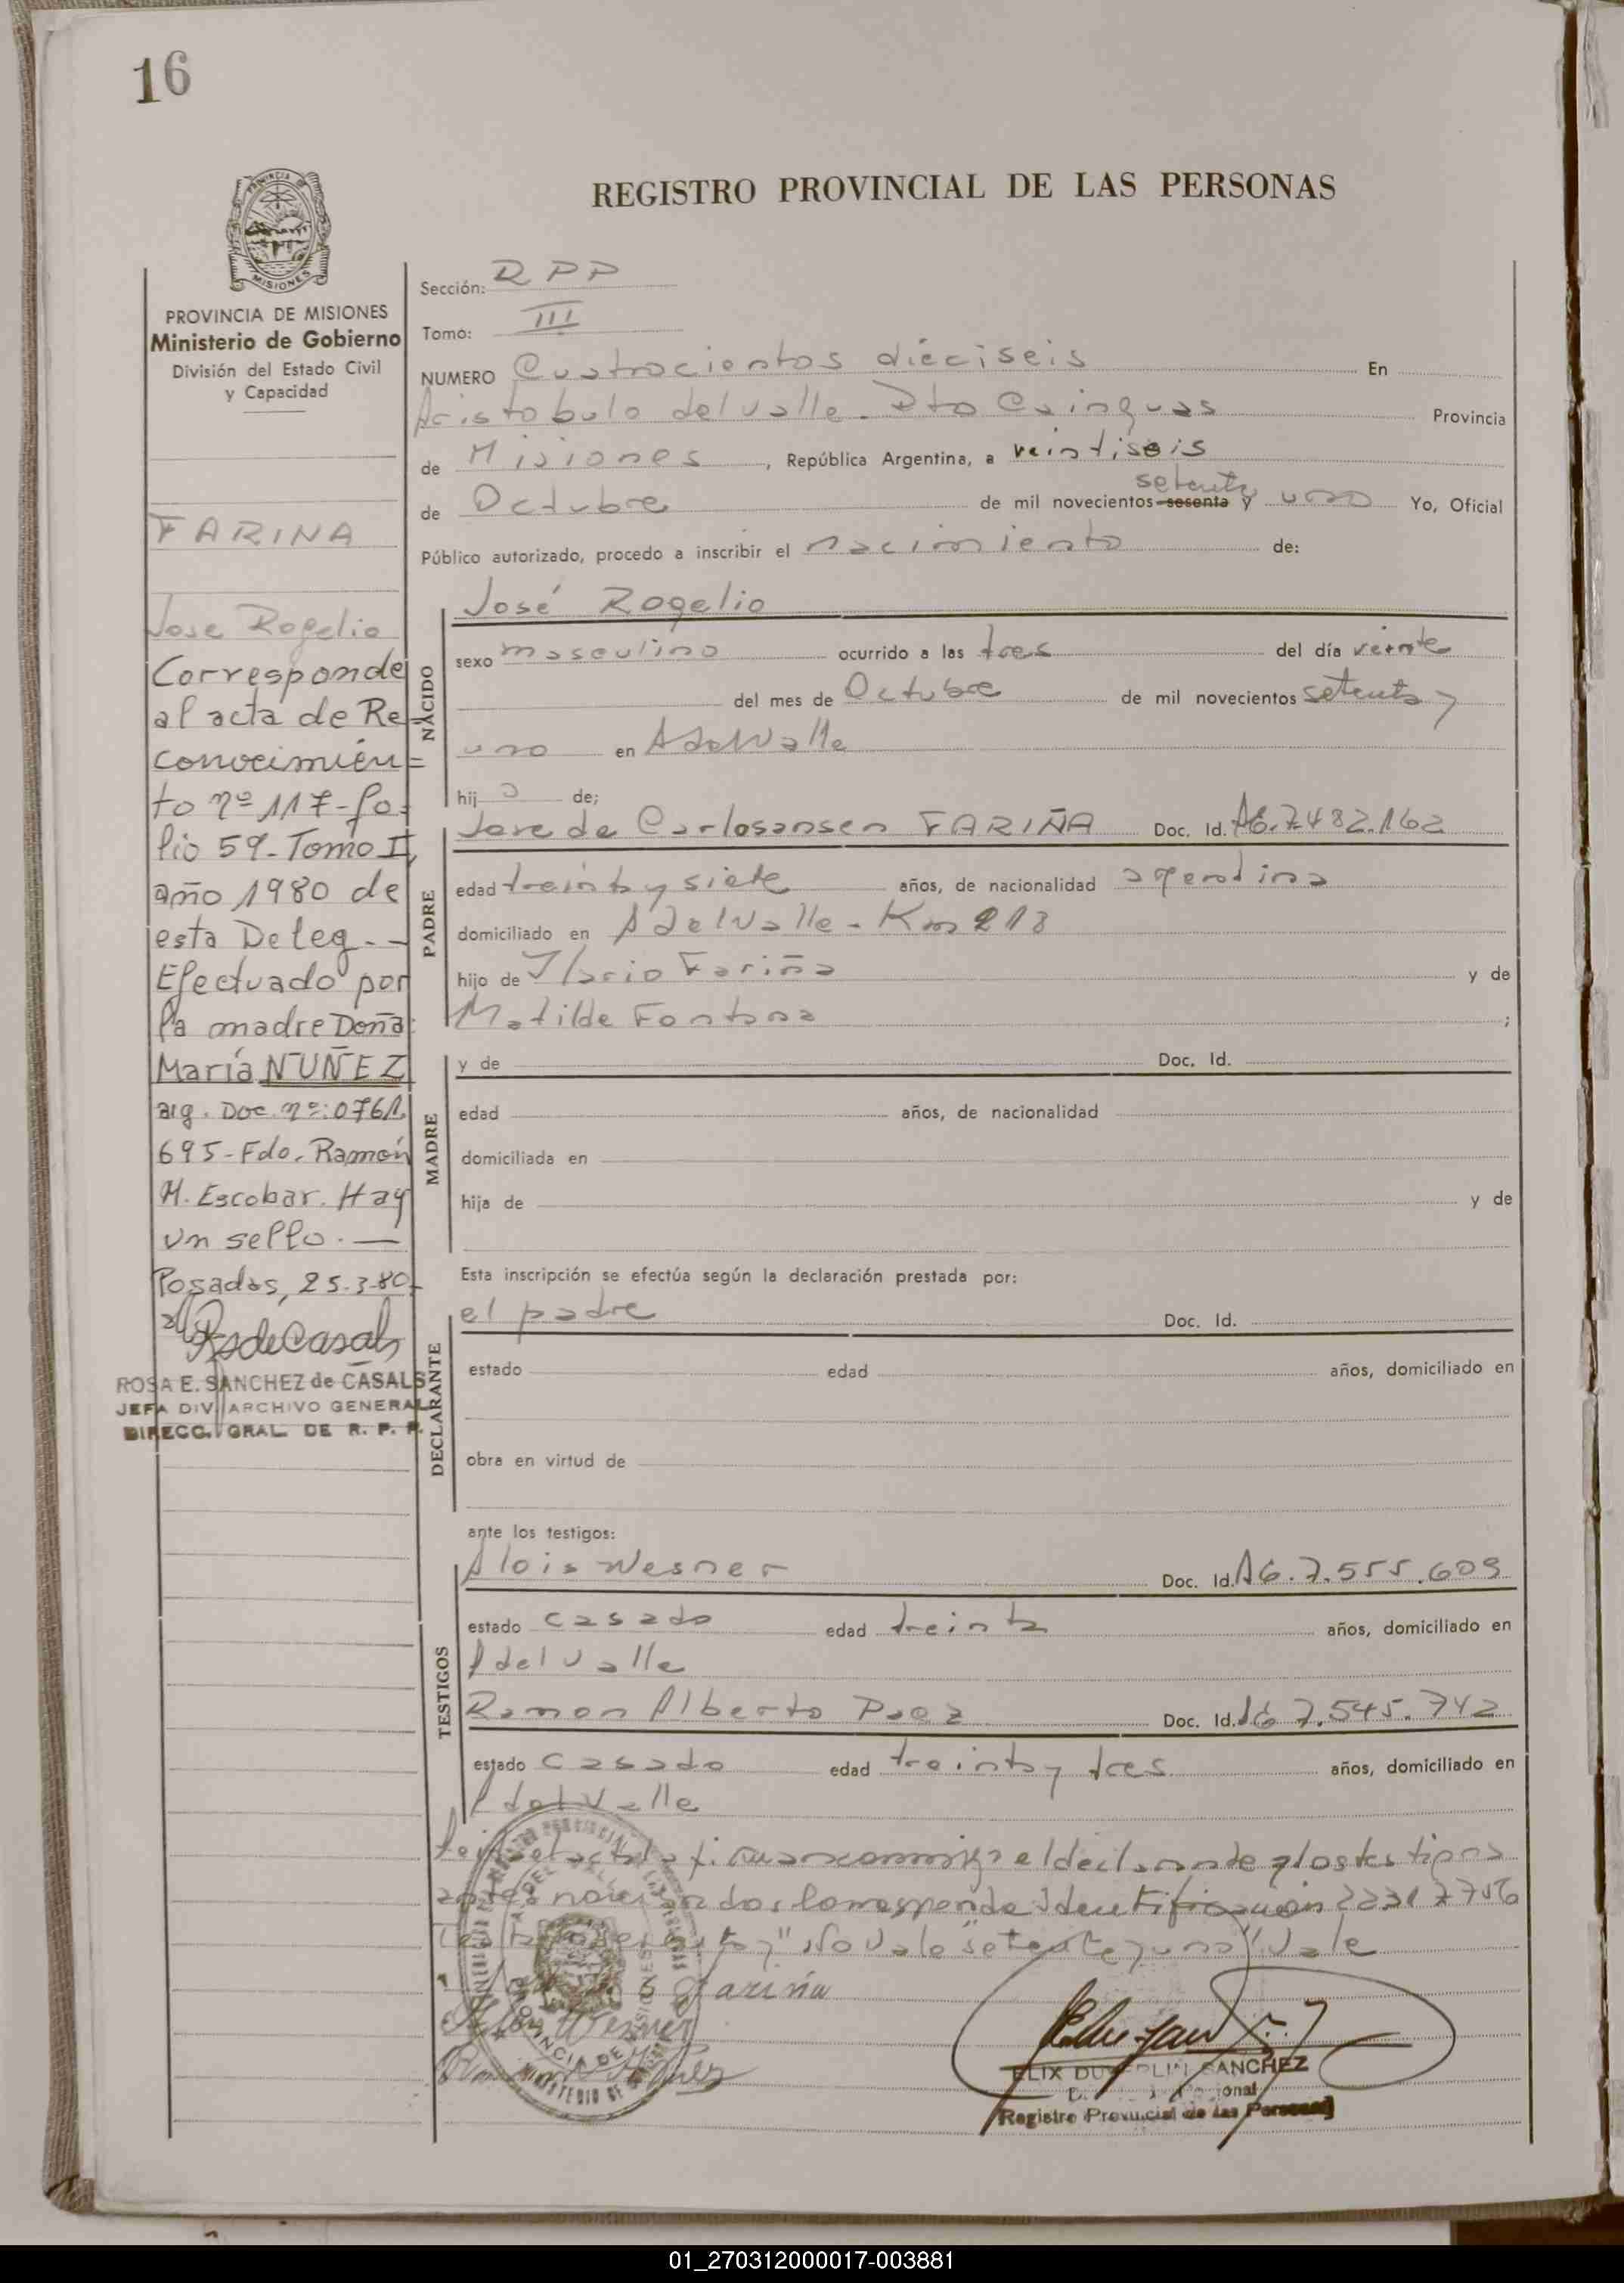 16
REGISTRO PROVINCIAL DE LAS PERSONAS
PROVINCIA DE MISIONES
Ministerio de Gobierno
División del Estado Civil
y Capacidad
FARINA
Jose Rogelio
Corresponde
al acta de Re=
conocimien=
to nº 117-fo-
lio 59-Tomo I,
año 1980 de
esta Deleg. -
Efectuado por
la madre Doña:
María NUÑEZ
arg. Doc. nº: 0761
695-Fdo. Ramón
M. Escobar. Hay
un sello. —
Posadas, 25-3-80-
RsdeCasals
ROSA E. SANCHEZ de CASALS
JEFA DIV. ARCHIVO GENERAL
DIRECC. GRAL. DE R. P. P.
Sección: RPP
Tomo: III
NUMERO Cuatrocientos dieciseis En
Aristobulo del valle. Dto Cainguas Provincia
de Misiones, República Argentina, a veintiseis
setenta
de Octubre de mil novecientos sesenta y uno Yo, Oficial
Público autorizado, procedo a inscribir el nacimiento de:
NACIDO
José Rogelio
sexo masculino ocurrido a las tres del día veinte
del mes de Octubre de mil novecientos setenta y
uno en A del Valle
hij o de;
PADRE
Jose de Carlosansen FARIÑA Doc. Id. A6.7482.162
edad treinta y siete años, de nacionalidad argentina
domiciliado en A del Valle - Km 213
hijo de Ilario Fariña y de
Matilde Fontana ;
MADRE
y de Doc. Id.
edad años, de nacionalidad
domiciliada en
hija de y de
Esta inscripción se efectúa según la declaración prestada por:
DECLARANTE
el padre Doc. Id.
estado edad años, domiciliado en
obra en virtud de
ante los testigos:
TESTIGOS
Alois Wesner Doc. Id. A6.7.555.609
estado casado edad treinta años, domiciliado en
A del Valle
Ramon Alberto Paez Doc. Id. A6 7.545.742
estado casado edad treinta y tres años, domiciliado en
A del Valle
el acta la firman conmigo el declarante y los testigos
antes nombrados Corresponde Identificación 22317756
"No Vale "setenta y uno" Vale
Fariña
Wesner
SANCHEZ
Registro Provincial de las Personas
01_270312000017-003881